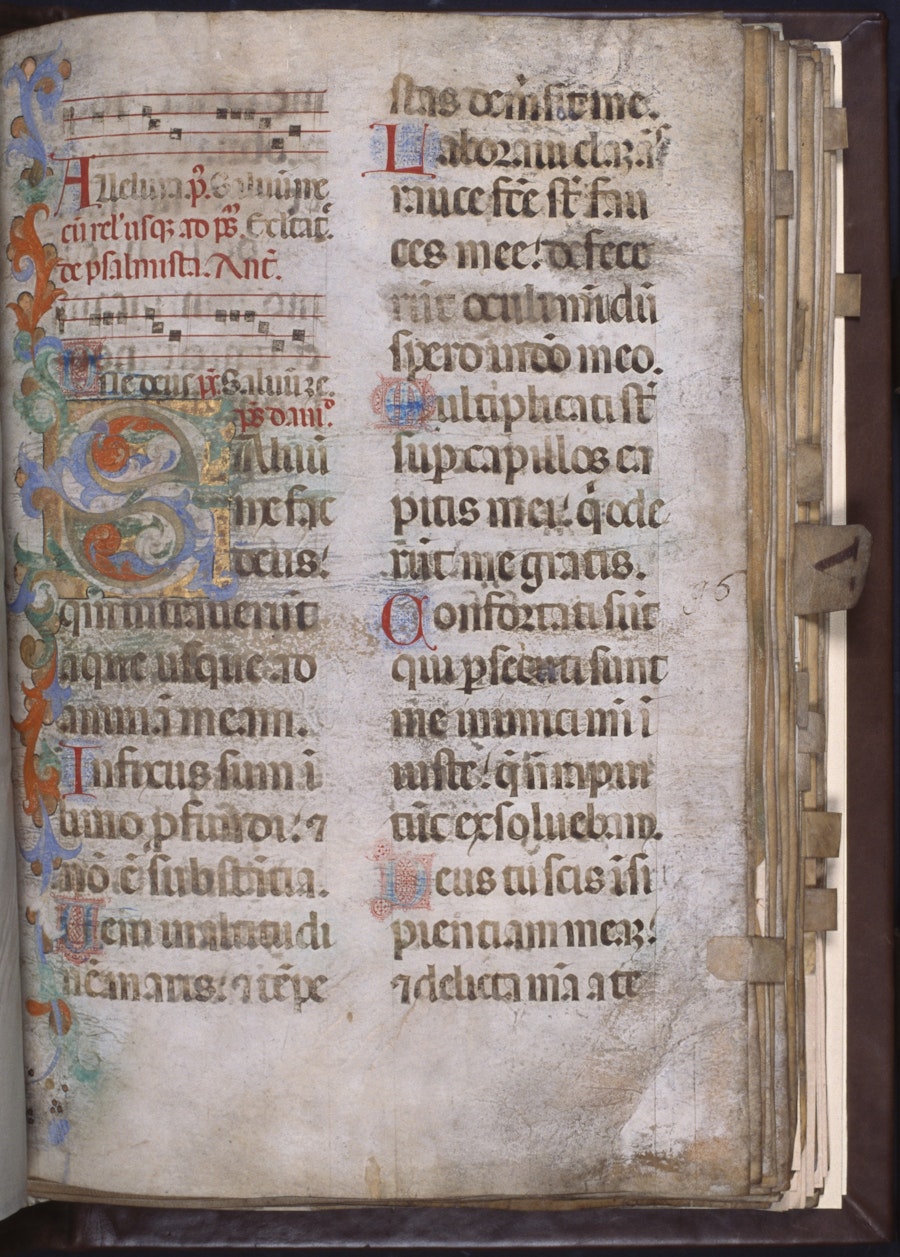 Alleluia. p̄s. Saluū me
cū rel' usq; ad ps̄. Exultat̄.
de psalmista. Ant̄.
p̄s. Saluū
ps̄ dauid.
Saluū
me fac
deus:
qm̄ intrauerūt
aque usque ad
animā meam.
Infixus sum ī
limo ꝓfundi: ⁊
nō ē substātia.
Ueni in altitudi
nē maris: ⁊ tēpe
stas demersit me.
Laboraui clamās
rauce fc̄e st̄ fau
ces mee: defece
rūt oculi mī dū
spero in dō meo.
Multiplicati st̄
sup capillos ca
pitis mei: q̄ ode
rūt me gratis.
Confortati sūt
qui ꝑsecuti sunt
me inimici mī ī
iuste: q̄ nō rapui
tūc exsoluebam.
Deus tu scis īsi
pientiam meaꝫ:
⁊ delicta mā a te
96
A